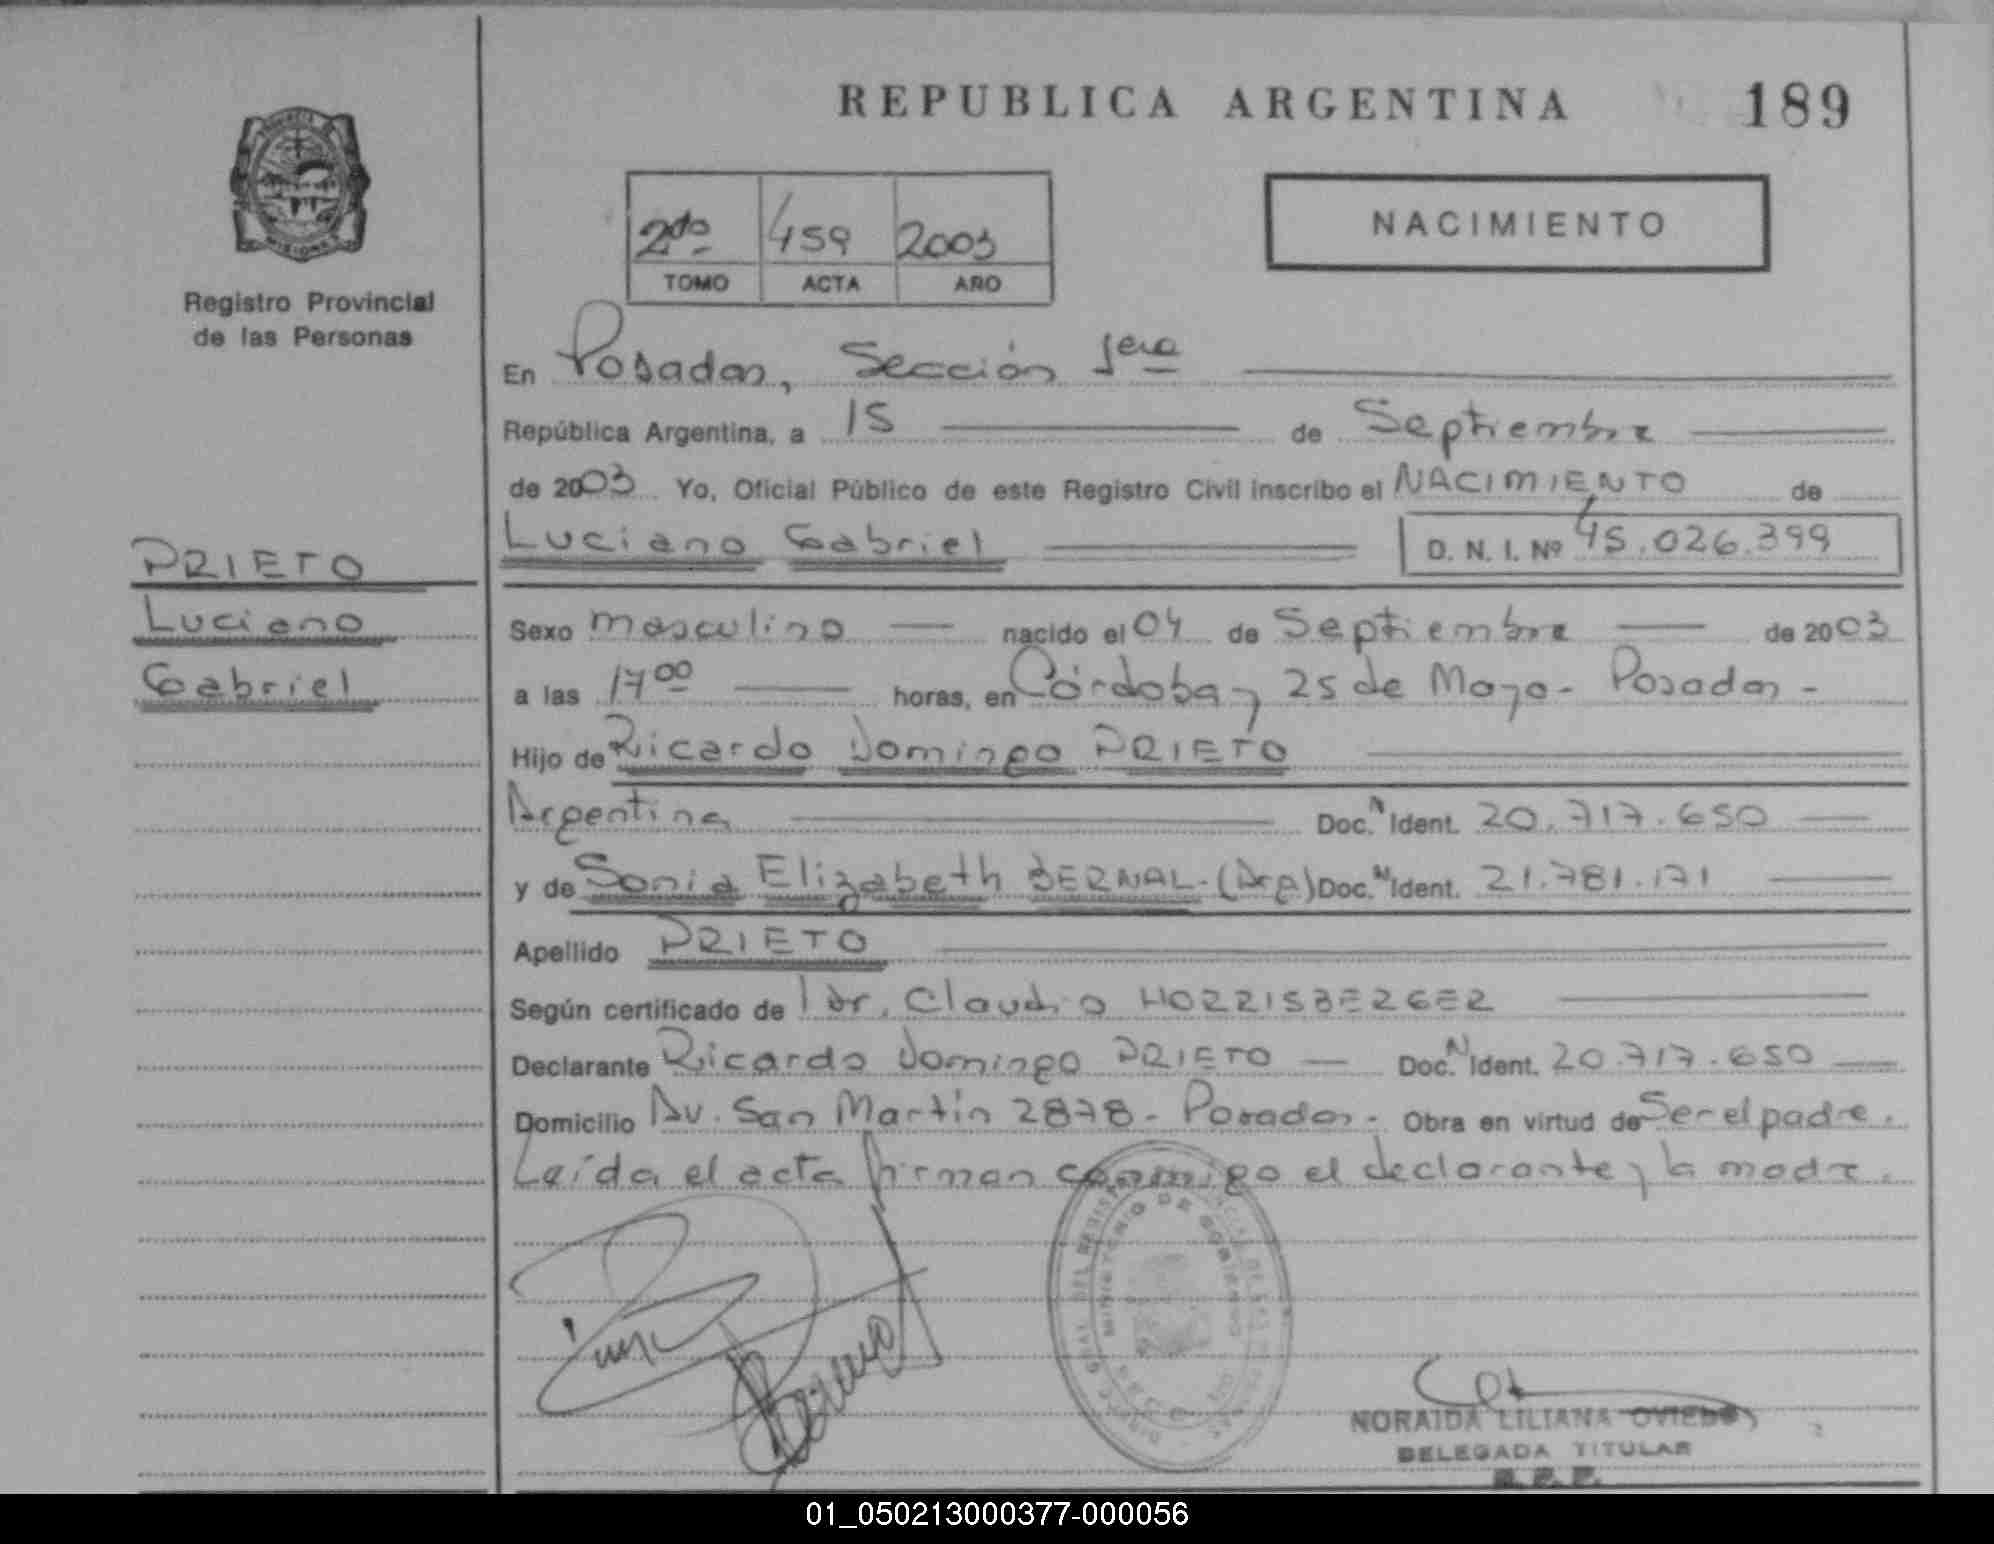 REPUBLICA ARGENTINA 189
2do 459 2003
TOMO ACTA AÑO
NACIMIENTO
MISIONES
Registro Provincial
de las Personas
En Posadas, Sección 1era
República Argentina, a 15 de Septiembre
de 2003 Yo, Oficial Público de este Registro Civil inscribo el NACIMIENTO de
Luciano Gabriel D. N. I. Nº 45.026.399
PRIETO
Luciano
Gabriel
Sexo masculino nacido el 04 de Septiembre de 2003
a las 17 00 horas, en Córdoba y 25 de Mayo - Posadas -
Hijo de Ricardo Domingo PRIETO
Argentina Doc. N Ident. 20.717.650
y de Sonia Elizabeth BERNAL - (Arg) Doc. N Ident. 21.781.171
Apellido PRIETO
Según certificado de Dr. Claudio HORRISBERGER
Declarante Ricardo Domingo PRIETO Doc. N Ident. 20.717.650
Domicilio Av. San Martín 2878 - Posadas - Obra en virtud de Ser el padre.
Leída el acta firman conmigo el declarante y la madre.
MINISTERIO DE GOBIERNO
NORAIDA LILIANA OVIEDO
DELEGADA TITULAR
R. P. P.
01_050213000377-000056